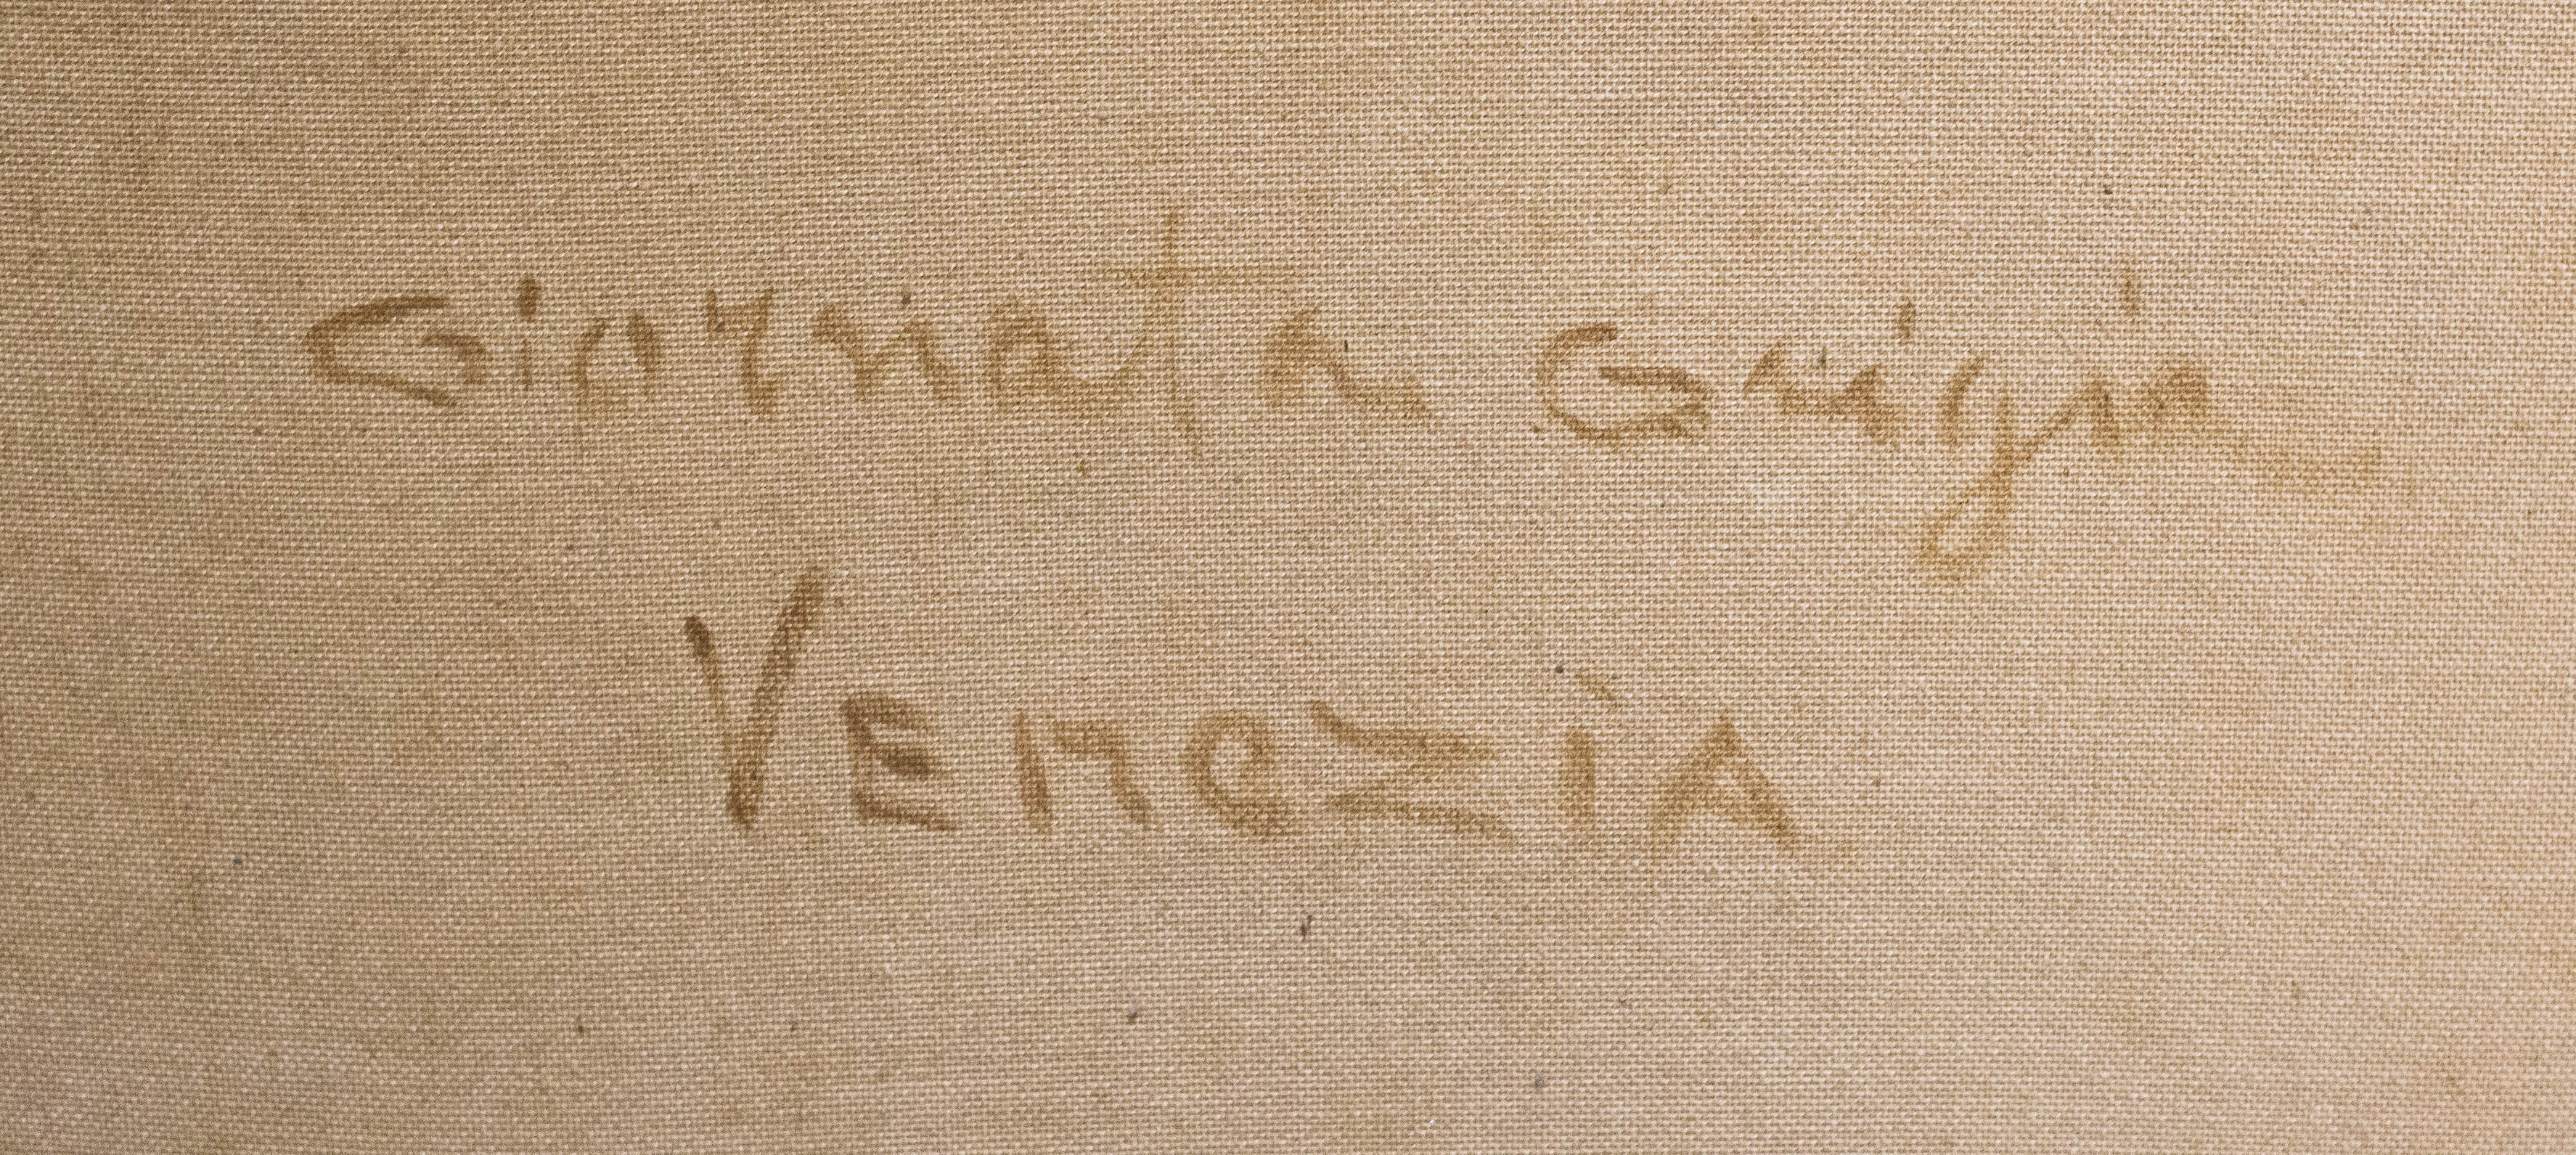 Giornata Grigia
Venezia